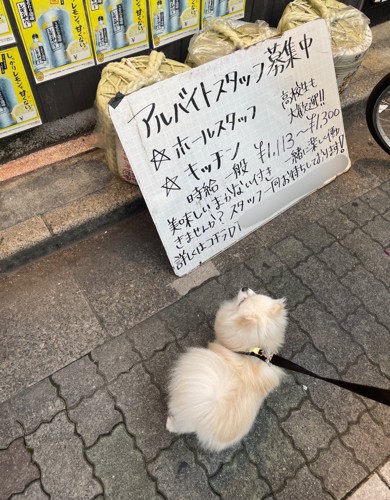 アルバイトスタッフ募集中
☆ホールスタッフ
☆キッチン
高校生も
大歓迎!!
時給 一般 ¥1,113〜¥1,300
美味しいまかない付き 一緒に楽しく働
きませんか?スタッフ一同お待ちしております!
詳しくはコチラ!